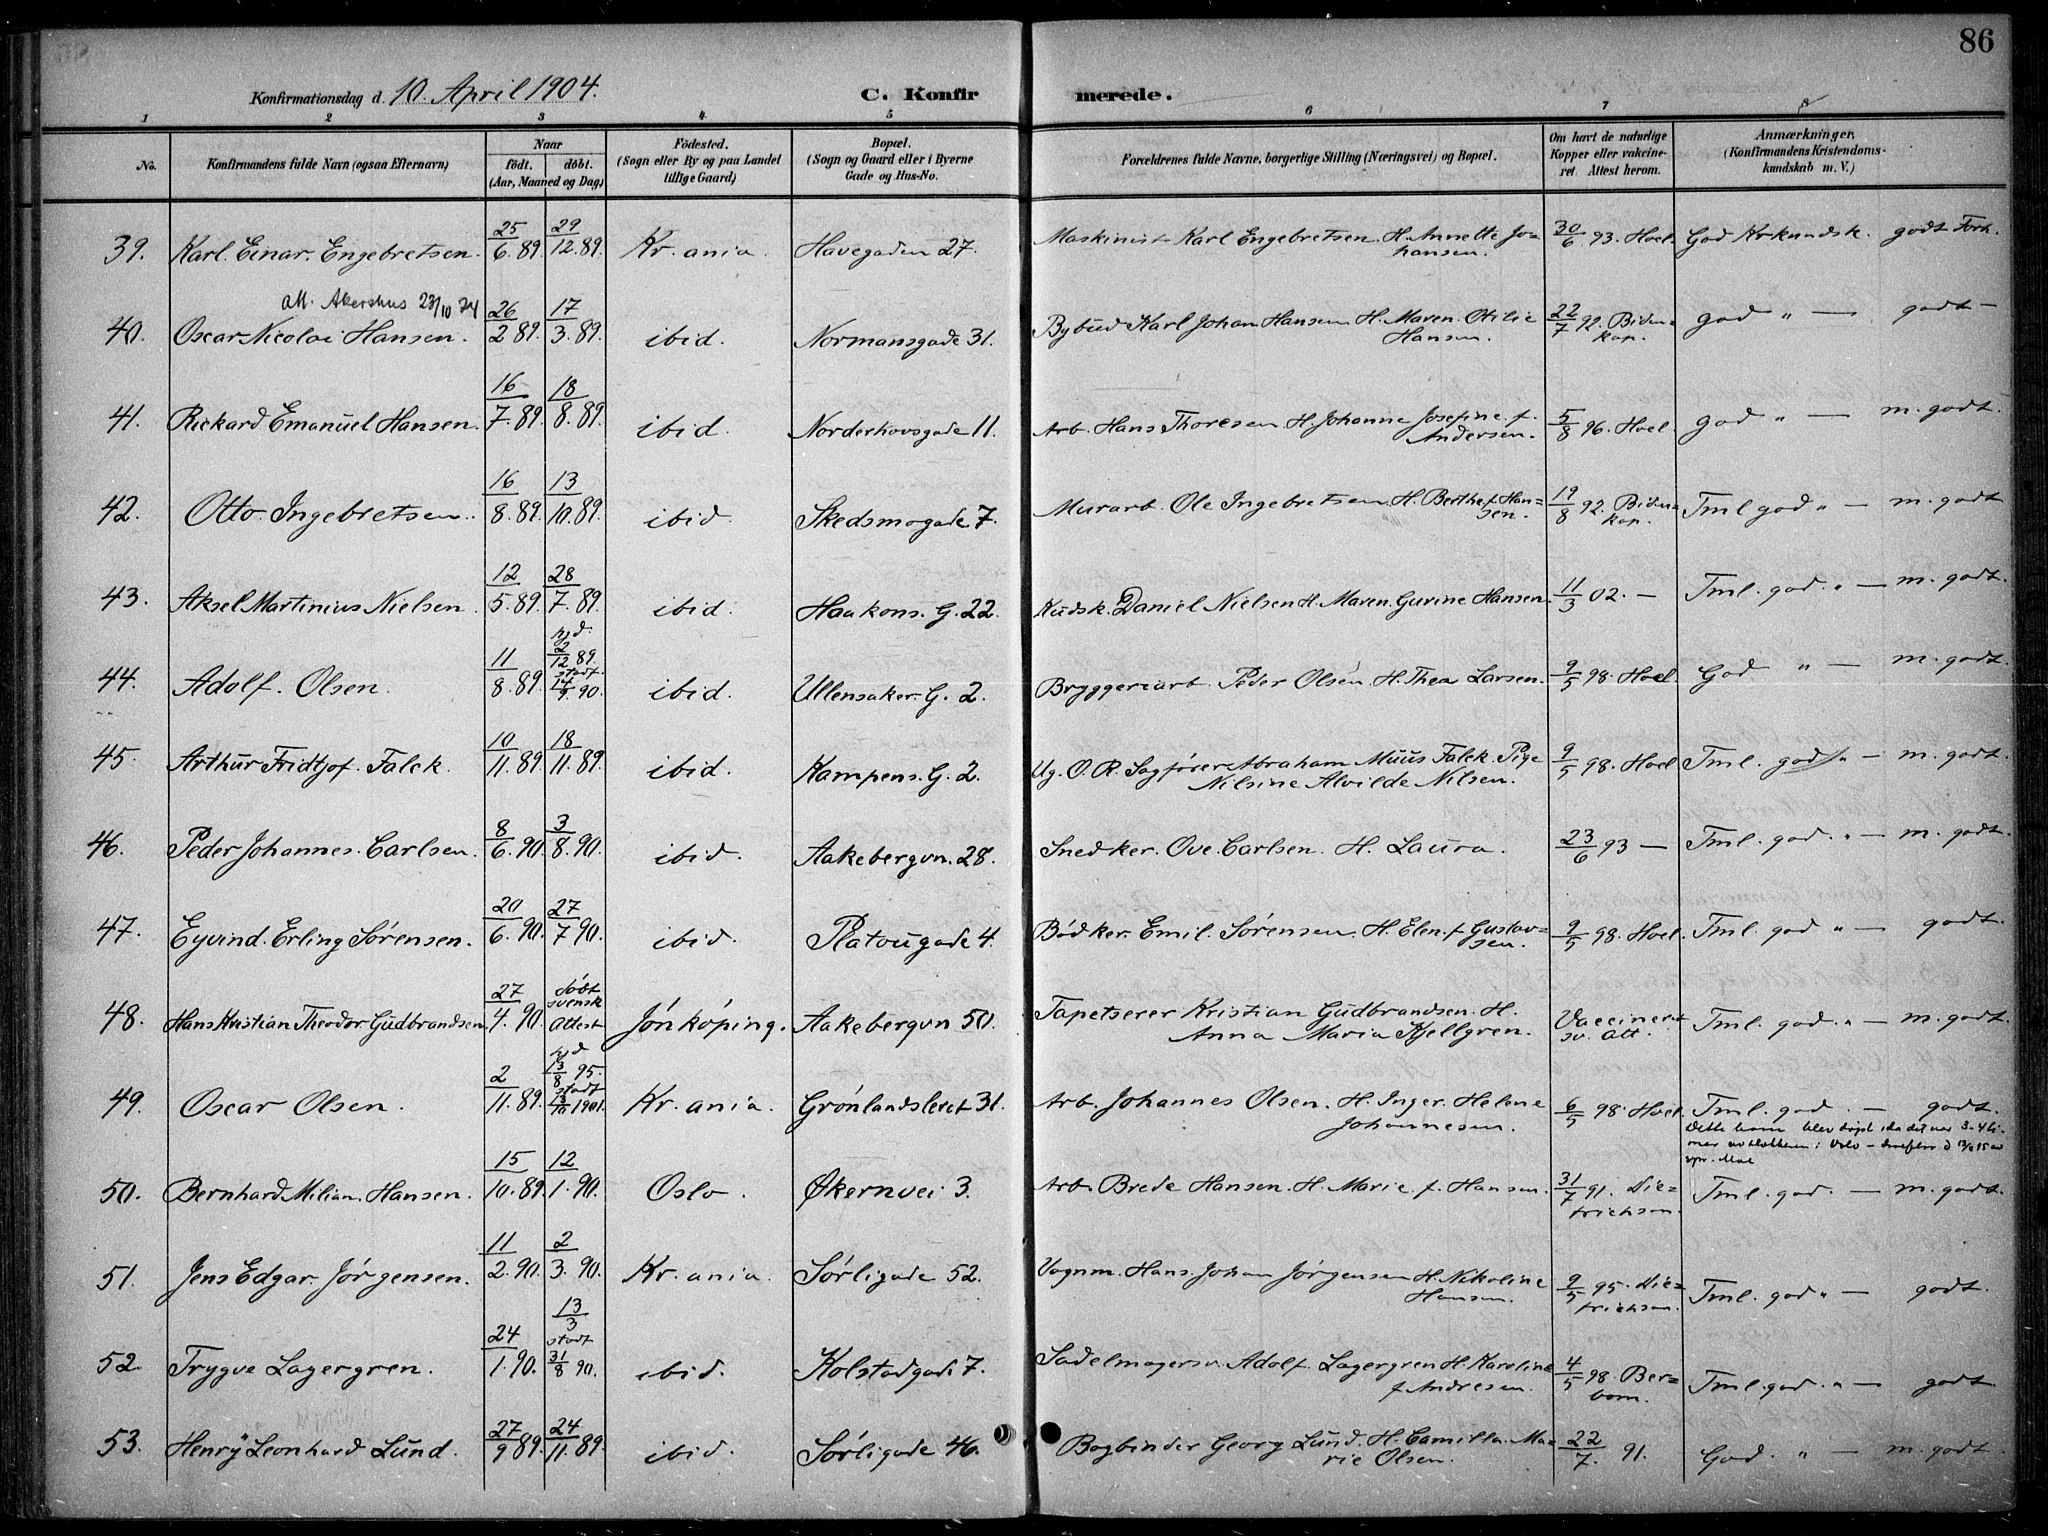 86
Konfirmationsdag d. 10. April 1904. C. Konfirmerede.
1 2 3 4 5 6 7 8
No. Konfirmandens fulde Navn (ogsaa Efternavn) Naar födt. döbt. (Aar, Maaned og Dag) Födested. (Sogn eller By og paa Landet tillige Gaard) Bopæl. (Sogn og Gaard eller i Byerne Gade og Hus-No. Forældrenes fulde Navne, borgerlige Stilling (Næringsvei) og Bopæl. Om havt de naturlige Kopper eller vakcineret. Attest herom. Anmærkninger. (Konfirmandens Kristendomskundskab m. V.)
39. Karl. Einar. Engebretsen. 25/6.89. 29/12.89. Kr.ania. Havegaden 27. Maskinist Karl Engebretsen. H. Annette Johansen. 30/6 93. Hoel. God Kr.kundsk. godt Forh.
att. Akershus 23/10 74
40. Oscar Nicolai Hansen. 26/2 89. 17/3.89. ibid. Normansgade 31. Bybud Karl Johan Hansen H. Maren. Otilie Hansen. 22/7 92. Bidenkap. god „ — godt —
41. Rickard Emanuel Hansen. 16/7.89. 18/8.89. ibid. Norderhovsgade 11. Arb. Hans Thoresen H. Johanne Josefine f. Andersen. 5/8 96. Hoel. god „ — m. godt.
42. Otto. Ingebretsen. 16/8.89. 13/10.89. ibid. Skedsmogade 7. Murarb. Ole Ingebretsen H. Berthe f. Hansen. 19/8 92. Bidenkap. Tml god „ — m. godt
43. Aksel Martinius Nielsen. 12/5.89. 28/7.89. ibid. Haakons. G. 22. Kudsk. Daniel Nielsen H. Maren. Gurine Hansen. 11/3 02. — Tml. god. „ — m. godt.
44. Adolf. Olsen. 11/8.89. hjd. 2/12 89. stadf. 14/9.90. ibid. Ullensaker. G. 2. Bryggeriarb. Peder Olsen. H. Thea Larsen. 9/5 98. Hoel. God „ — m. godt.
45. Arthur Fridtjof. Falck. 10/11.89. 18/11.89. ibid. Kampens. G. 2. Ug. O. R. Sagförer Abraham Muus Falck. Pige Nilsine Alvilde Nilsen. 9/5 98. Hoel Tml. god „ — m. godt.
46. Peder Johannes. Carlsen. 8/6.90. 3/8.90. ibid. Aakebergvn. 28. Snedker. Ove. Carlsen. H. Laura. 23/6 93 — Tml. god. „ — m. godt.
47. Eyvind. Erling Sörensen. 20/6.90. 27/7 90. ibid. Platougade 4. Bödker. Emil. Sörensen. H. Elen. f Gustavsen. 9/5 98. Hoel. Tml. god „ — godt.
48. Hans Kristian Theodor Gudbrandsen 27/4.90. döbt svensk Attest Jönköping. Aakebergvn 50. Tapetserer Kristian Gudbrandsen. H. Anna Maria Kjellgren. Vaccinert sv. Att. Tml. god. „ — m. godt.
49. Oscar Olsen. 2/11.89. hjd 13/8 95. stadf 1901. Kr.ania. Grönlandsleret 31. Arb. Johannes Olsen. H. Inger. Helene Johannesen. 6/5 98. Hoel. Tml. god. — godt.
Dette barn blev döpt da det var 3-4 ti-
50. Bernhard Milian. Hansen. 15/10.89. 12/1.90. Oslo. Økernvei 3. Arb. Brede Hansen. H. Marie f. Hansen. 31/7 91. Dietrichson. Tml. god. — m. godt.
51. Jens Edgar. Jörgensen. 11/2.90. 2/3.90. Kr.ania. Sörligade 52. Vognm. Hans. Johan Jörgensen H. Nikoline Hansen. 9/5 95. Dietrichson. Tml. god „ — godt.
52. Trygve Lagergren. 24/1.90. 13/3 stadf 31/8 90. ibid. Kolstadgade 7. Sadelmagersv. Adolf. Lagergren H. Karoline f Andresen. 4/5 98. Berbom. Tml. god. „ — godt.
53. Henry Leonhard Lund. 27/9 89. 24/11.89. ibid. Sörligade 46. Bogbinder Georg Lund. H. Camilla Marie Olsen. 22/7. 91. God. „ — m. godt.